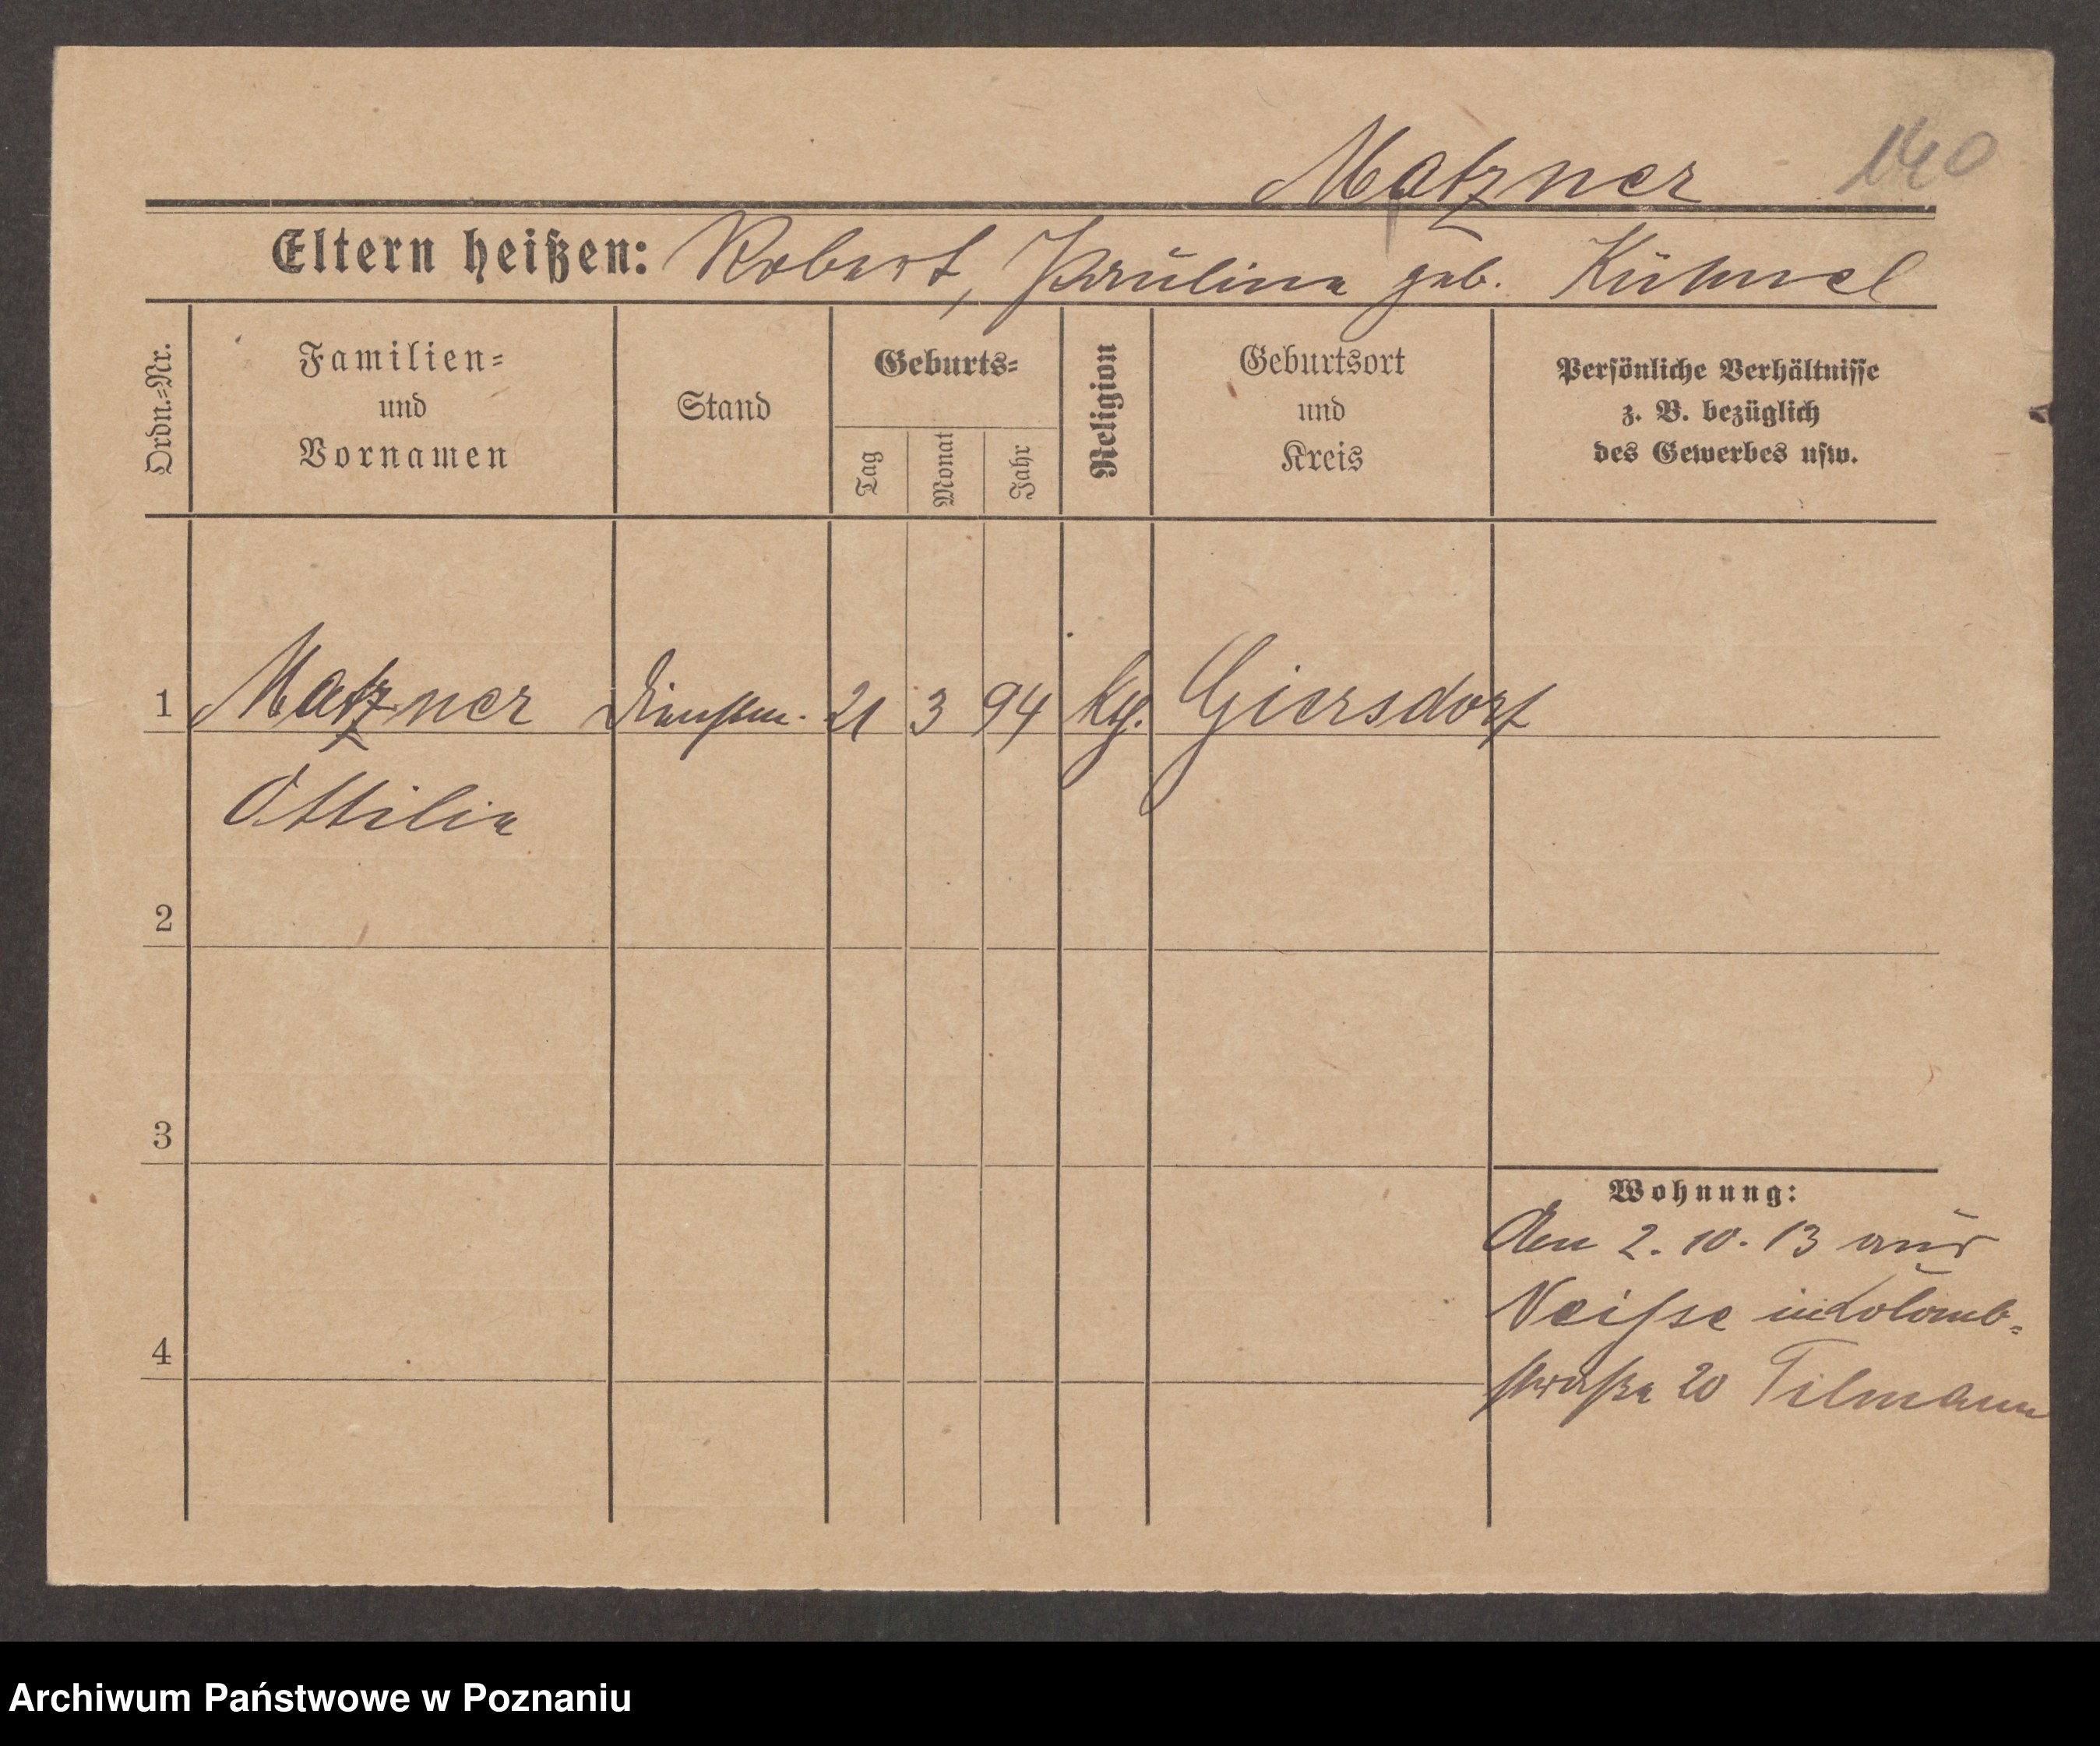 Matzner 140
Eltern heißen: Robert, Pauline geb. Kühnel
Ordn.=Nr.
Familien=
und
Vornamen
Stand
Geburts=
Tag
Monat
Jahr
Religion
Geburtsort
und
Kreis
Persönliche Verhältnisse
z. B. bezüglich
des Gewerbes usw.
1 Matzner 21 3 94 Giersdorf
Ottilie
2
3
4
Wohnung:
Den 2. 10. 13 aus
Neisse in
straße 20 Tilmann
Archiwum Państwowe w Poznaniu